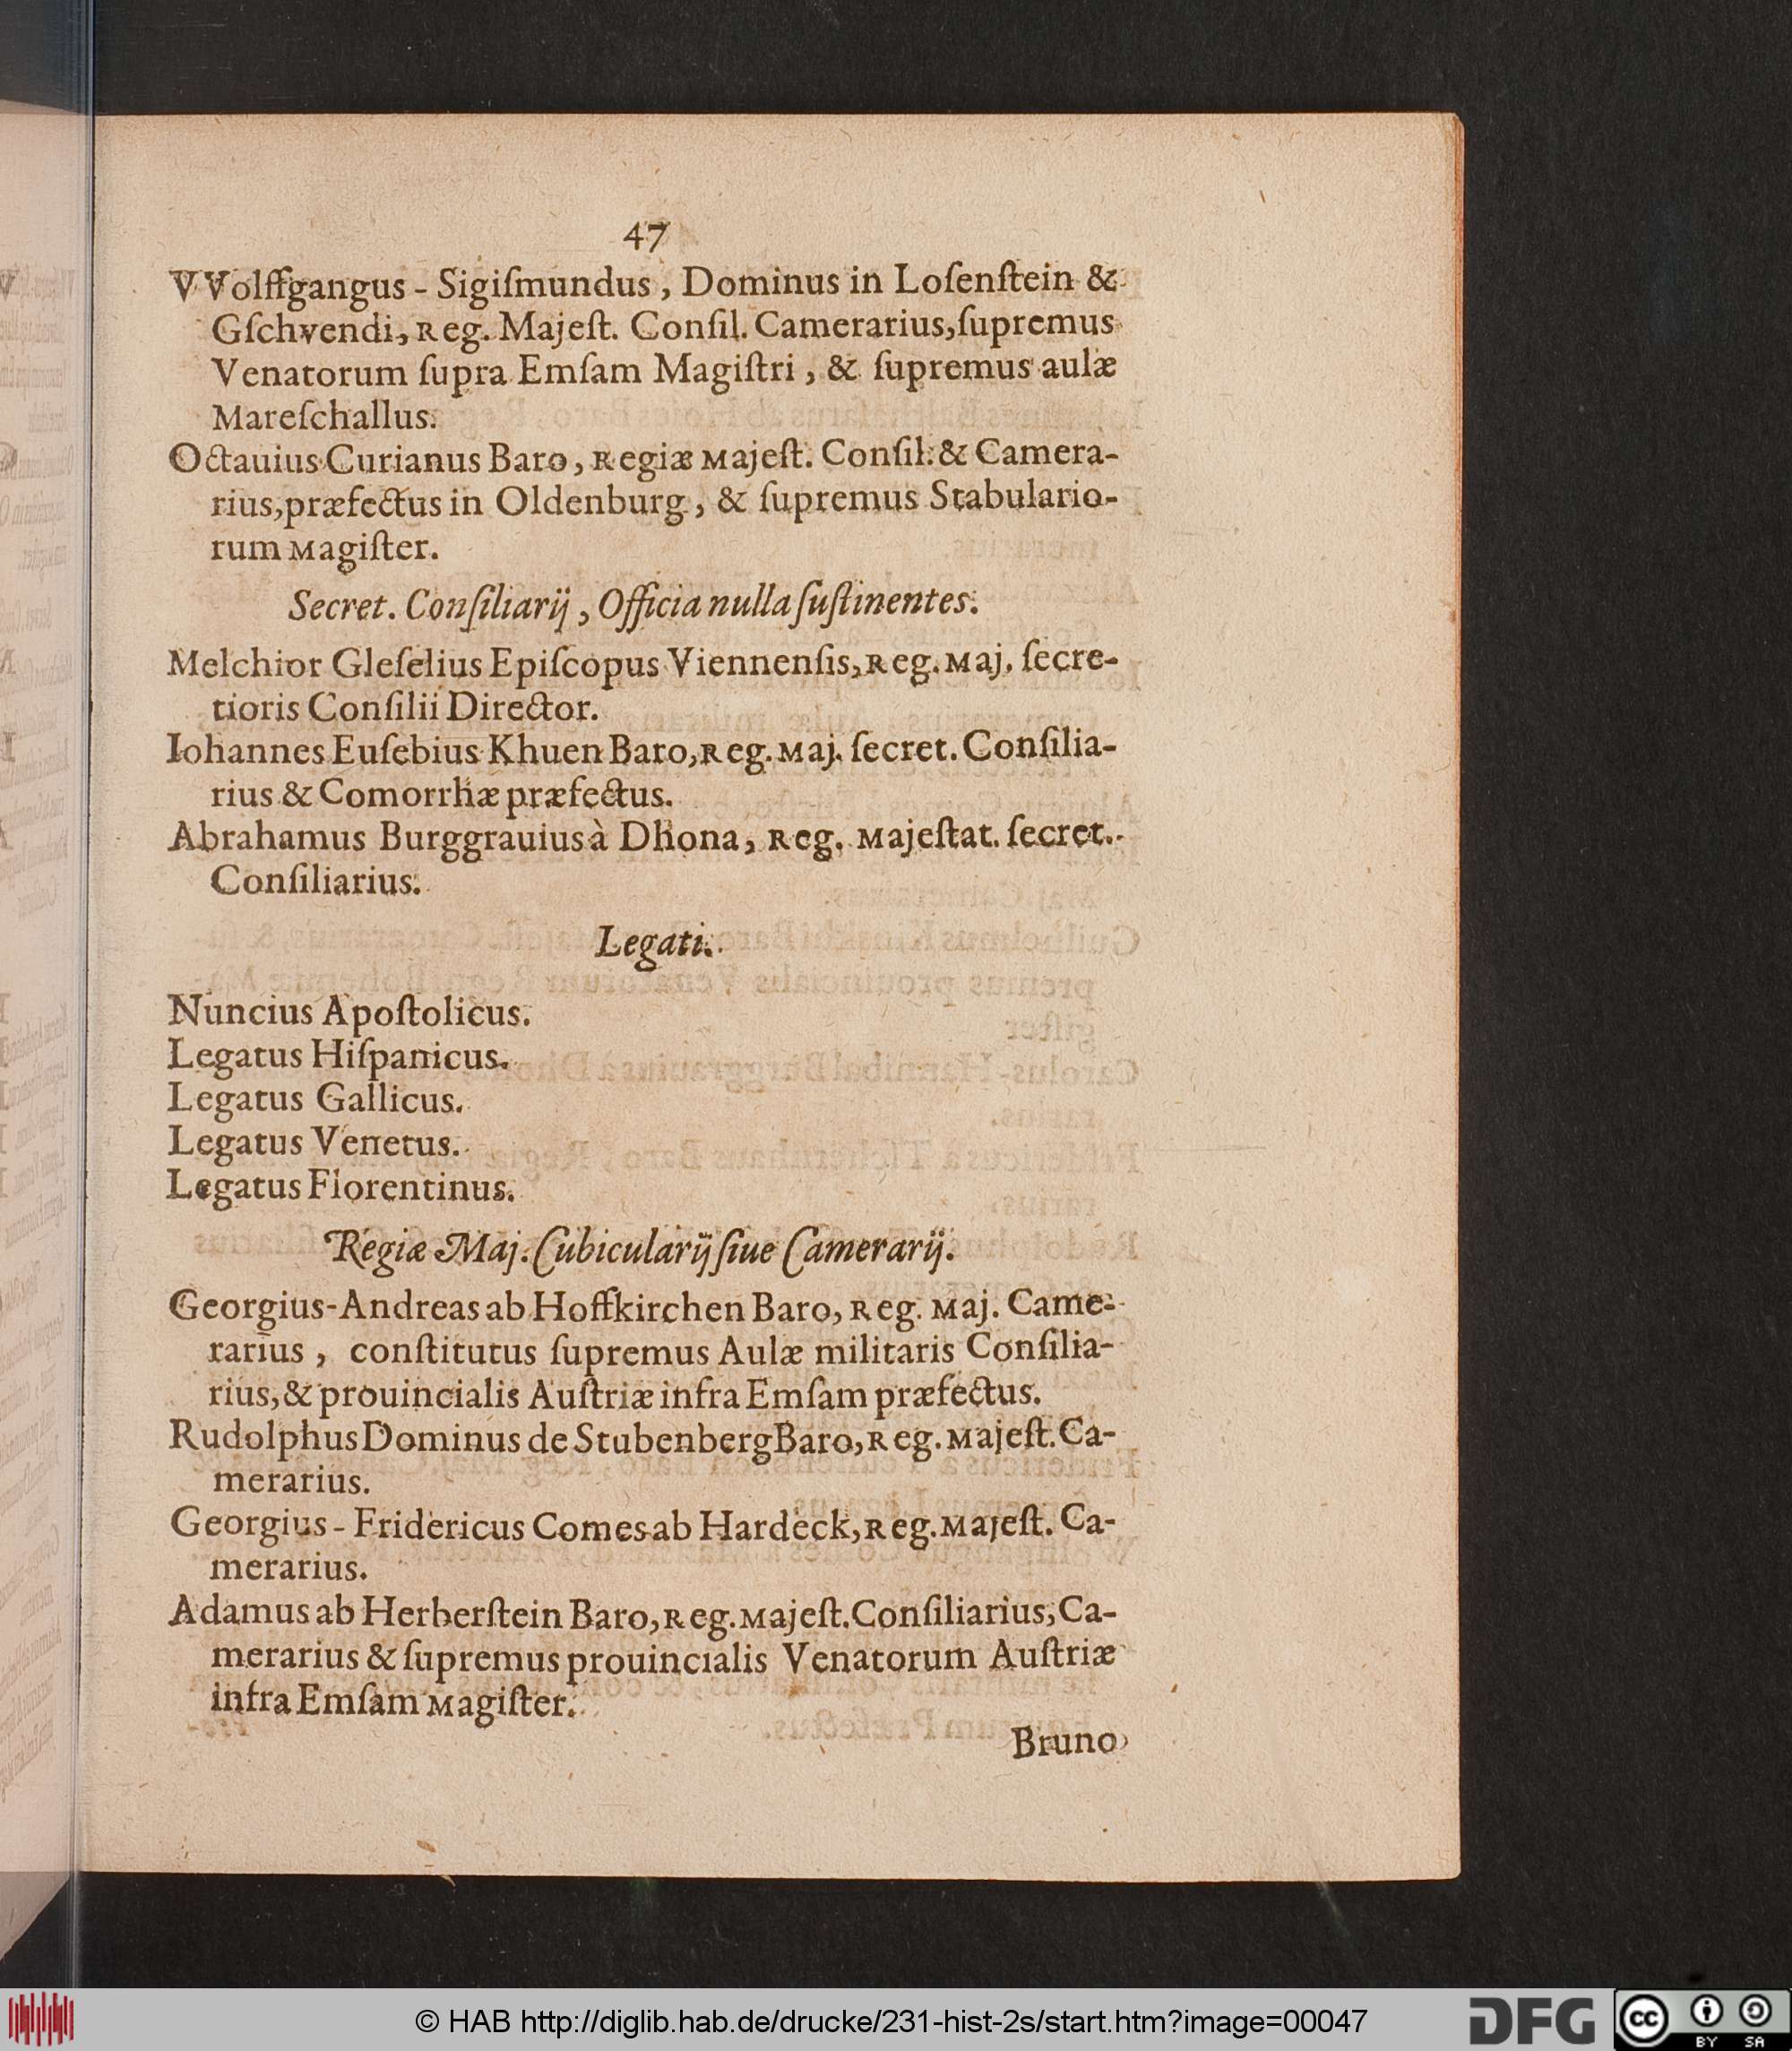 47
VVolffgangus - Sigiſmundus, Dominus in Loſenſtein &
Gſchvendi, Reg. Majeſt. Conſil. Camerarius, ſupremus
Venatorum ſupra Emſam Magiſtri, & ſupremus aulæ
Mareſchallus.
Octauius Curianus Baro, Regiæ Majeſt. Conſil. & Camera-
rius, præfectus in Oldenburg, & ſupremus Stabulario-
rum Magiſter.
Secret. Conſiliarij, Officia nulla ſuſtinentes.
Melchior Gleſelius Epiſcopus Viennenſis, Reg. Maj. ſecre-
tioris Conſilii Director.
Iohannes Euſebius Khuen Baro, Reg. Maj. ſecret. Conſilia-
rius & Comorrhæ præfectus.
Abrahamus Burggrauius à Dhona, Reg. Majeſtat. ſecret.
Conſiliarius.
Legati.
Nuncius Apoſtolicus.
Legatus Hiſpanicus.
Legatus Gallicus.
Legatus Venetus.
Legatus Florentinus.
Regiæ Maj. Cubicularij ſiue Camerarij.
Georgius-Andreas ab Hoffkirchen Baro, Reg. Maj. Came-
rarius, conſtitutus ſupremus Aulæ militaris Conſilia-
rius, & prouincialis Auſtriæ infra Emſam præfectus.
Rudolphus Dominus de Stubenberg Baro, Reg. Majeſt. Ca-
merarius.
Georgius - Fridericus Comes ab Hardeck, Reg. Majeſt. Ca-
merarius.
Adamus ab Herberſtein Baro, Reg. Majeſt. Conſiliarius, Ca-
merarius & ſupremus prouincialis Venatorum Auſtriæ
infra Emſam Magiſter.
Bruno
© HAB http://diglib.hab.de/drucke/231-hist-2s/start.htm?image=00047
DFG
cc BY SA